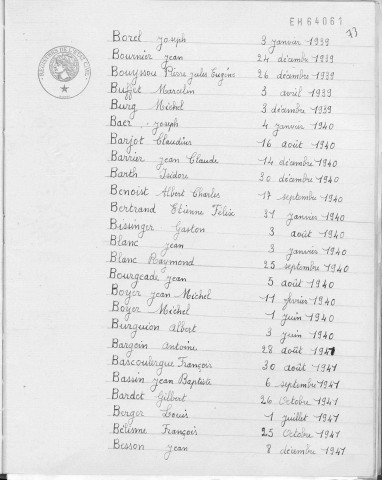 EH64061
73
Borel Joseph 3 janvier 1939
Bournier Jean 24 décembre 1939
Bouyssou Pierre Jules Eugène 26 décembre 1939
Buffet Marcelin 3 avril 1939
Burg Michel 3 décembre 1939
Baer Joseph 4 janvier 1940
Barjot Claudius 16 août 1940
Barrier Jean Claude 14 décembre 1940
Barth Isidore 30 décembre 1940
Benoist Albert Charles 17 septembre 1940
Bertrand Etienne Félix 31 janvier 1940
Bissinger Gaston 3 août 1940
Blanc Jean 3 janvier 1940
Blanc Raymond 25 septembre 1940
Bourgeade Jean 5 août 1940
Boyer Jean Michel 11 février 1940
Boyer Michel 1 juin 1940
Burguion Albert 3 juin 1940
Bargoin Antoine 28 août 1941
Bascoulergue François 30 août 1941
Bassin Jean Baptiste 6 septembre 1941
Bardet Gilbert 26 Octobre 1941
Berger Louis 1 juillet 1941
Bélisme François 25 Octobre 1941
Besson Jean 8 décembre 1941